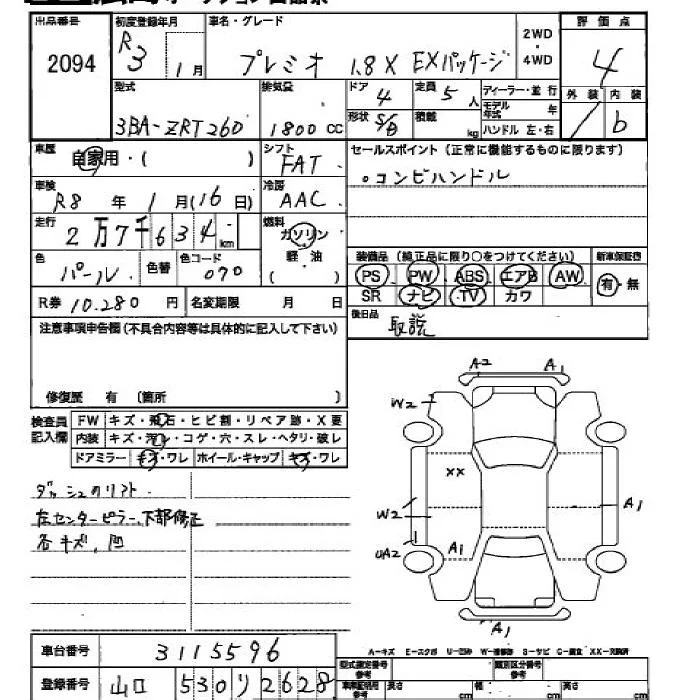 出品番号 初度登録年月 車名・グレード 2WD・4WD 評価点
2094 R3 1月 プレミオ 1.8X EXパッケージ 4
型式 排気量 ドア 4 定員 5人 ディーラー・並行 外装 内装
3BA-ZRT260 1800cc 形状 S/D 積載 kg モデル年式 年 b
ハンドル 左・右
車歴 自家用・( ) シフト FAT セールスポイント(正常に機能するものに限ります)
車検 R8年1月(16日) 冷房 AAC 。コンビハンドル
走行 2万7千634km 燃料 ガソリン
軽・油
( )
色 パール 色替 色コード 070 装備品(純正品に限り○をつけてください) 新車保証書
PS PW ABS エアB AW 有・無
SR ナビ TV カワ
R券 10.280円 名変期限 月 日 後日品 取説
注意事項申告欄(不具合内容等は具体的に記入して下さい)
修復歴 有 (箇所 )
検査員記入欄 FW キズ・飛石・ヒビ割・リペア跡・X要
内装 キズ・汚レ・コゲ・穴・スレ・ヘタリ・破レ
ドアミラー キズ・ワレ ホイール・キャップ キズ・ワレ
ダッシュのリフト
左センターピラー、下部修正
各キズ、凹
A2 A1
W2
XX
W2 A1
UA2 A1
A1
A-キズ
車台番号 3115596
登録番号 山口 530 リ 2628
型式指定番号 参考 類別区分番号 参考
長さ cm 幅 cm 高さ cm